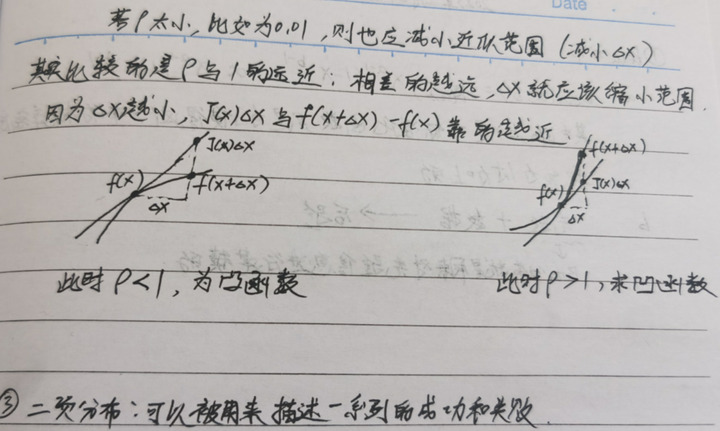 Date
若ρ太小,比如为0.01,则也应减小近似范围(减小△x)
其实比较的是ρ与1的远近:相差的越远,△x就应该缩小范围.
因为△x越小,J(x)△x与f(x+△x)-f(x)靠的越近.
J(x)△x
f(x)
f(x+△x)
△x
f(x+△x)
f(x)
J(x)△x
△x
此时ρ<1,为凸函数
此时ρ>1,求凹函数
③二项分布:可以被用来描述一系列的成功和失败.